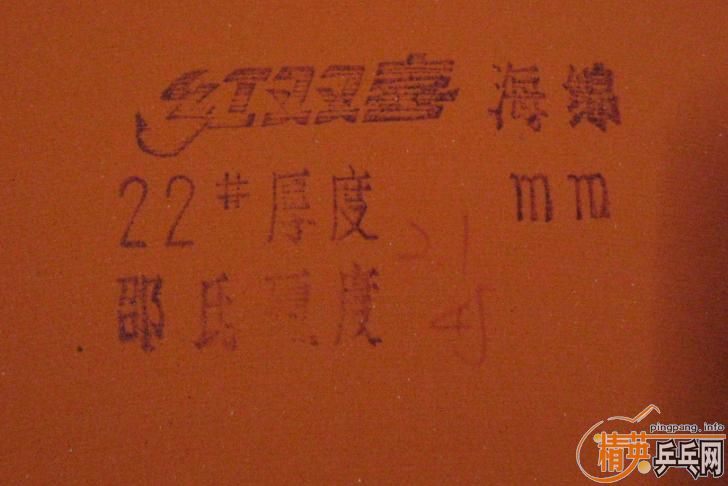 红双喜 海绵
22# 厚度 21 mm
邵氏硬度 45
pingpang.info
精英乒乓网